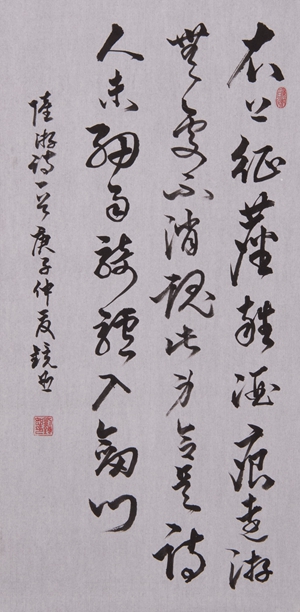 衣上征塵雜酒痕遠游
無處不消魂此身合是詩
人未細雨騎驢入劍門
陸游詩一首庚子仲夏鏡